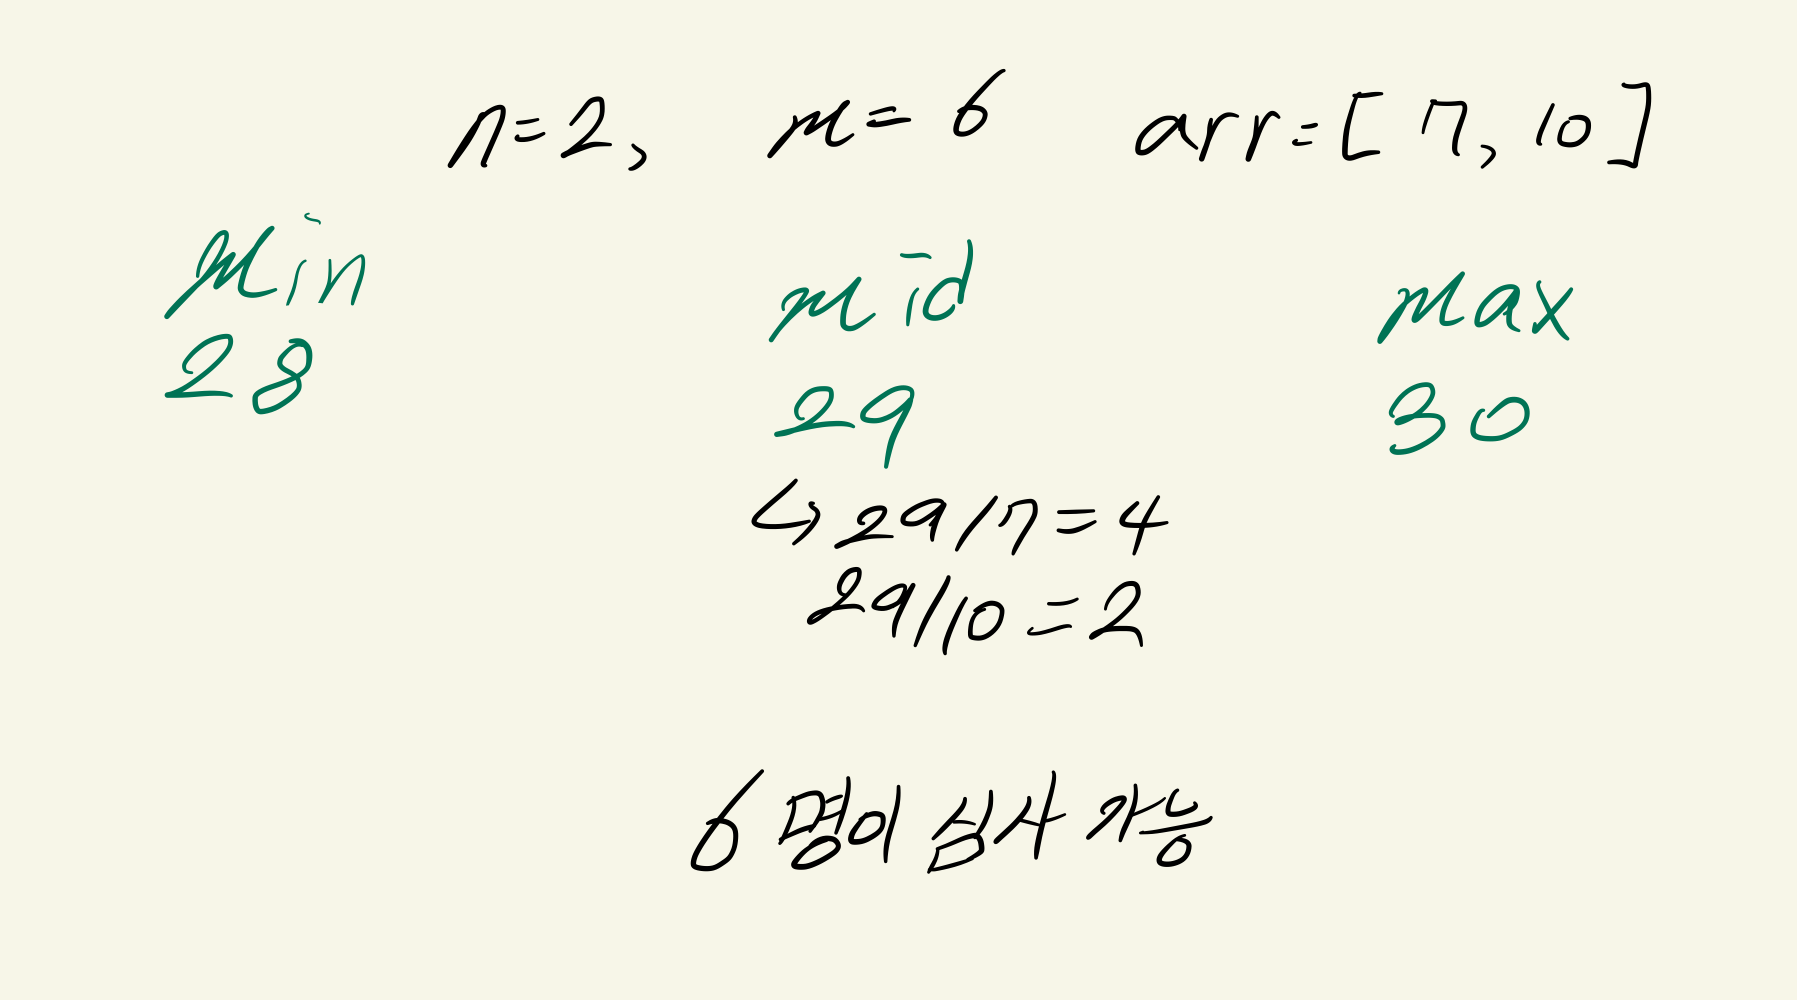 n=2, m=6 arr=[7, 10]
min mid max
28 29 30
↳ 29/7=4
29/10=2
6명이 심사 가능